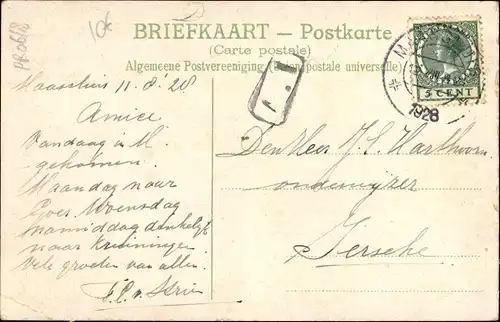 BRIEFKAART — Postkarte
(Carte postale)
Algemeene Postvereeniging (Union postale universelle)
PR06/8
10c
5 CENT
1928
I.
Maassluis 11.8.'28
Amice
Vandaag in M.
gekomen.
Maandag naar
Goes. Woensdag
namiddag denkelijk
naar Kruiningen.
Vele groeten van allen.
Den Heer J. S. Harthoorn
onderwijzer
Ierseke